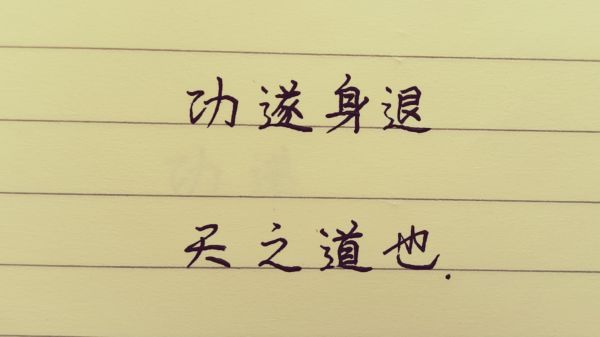 功遂身退
天之道也.